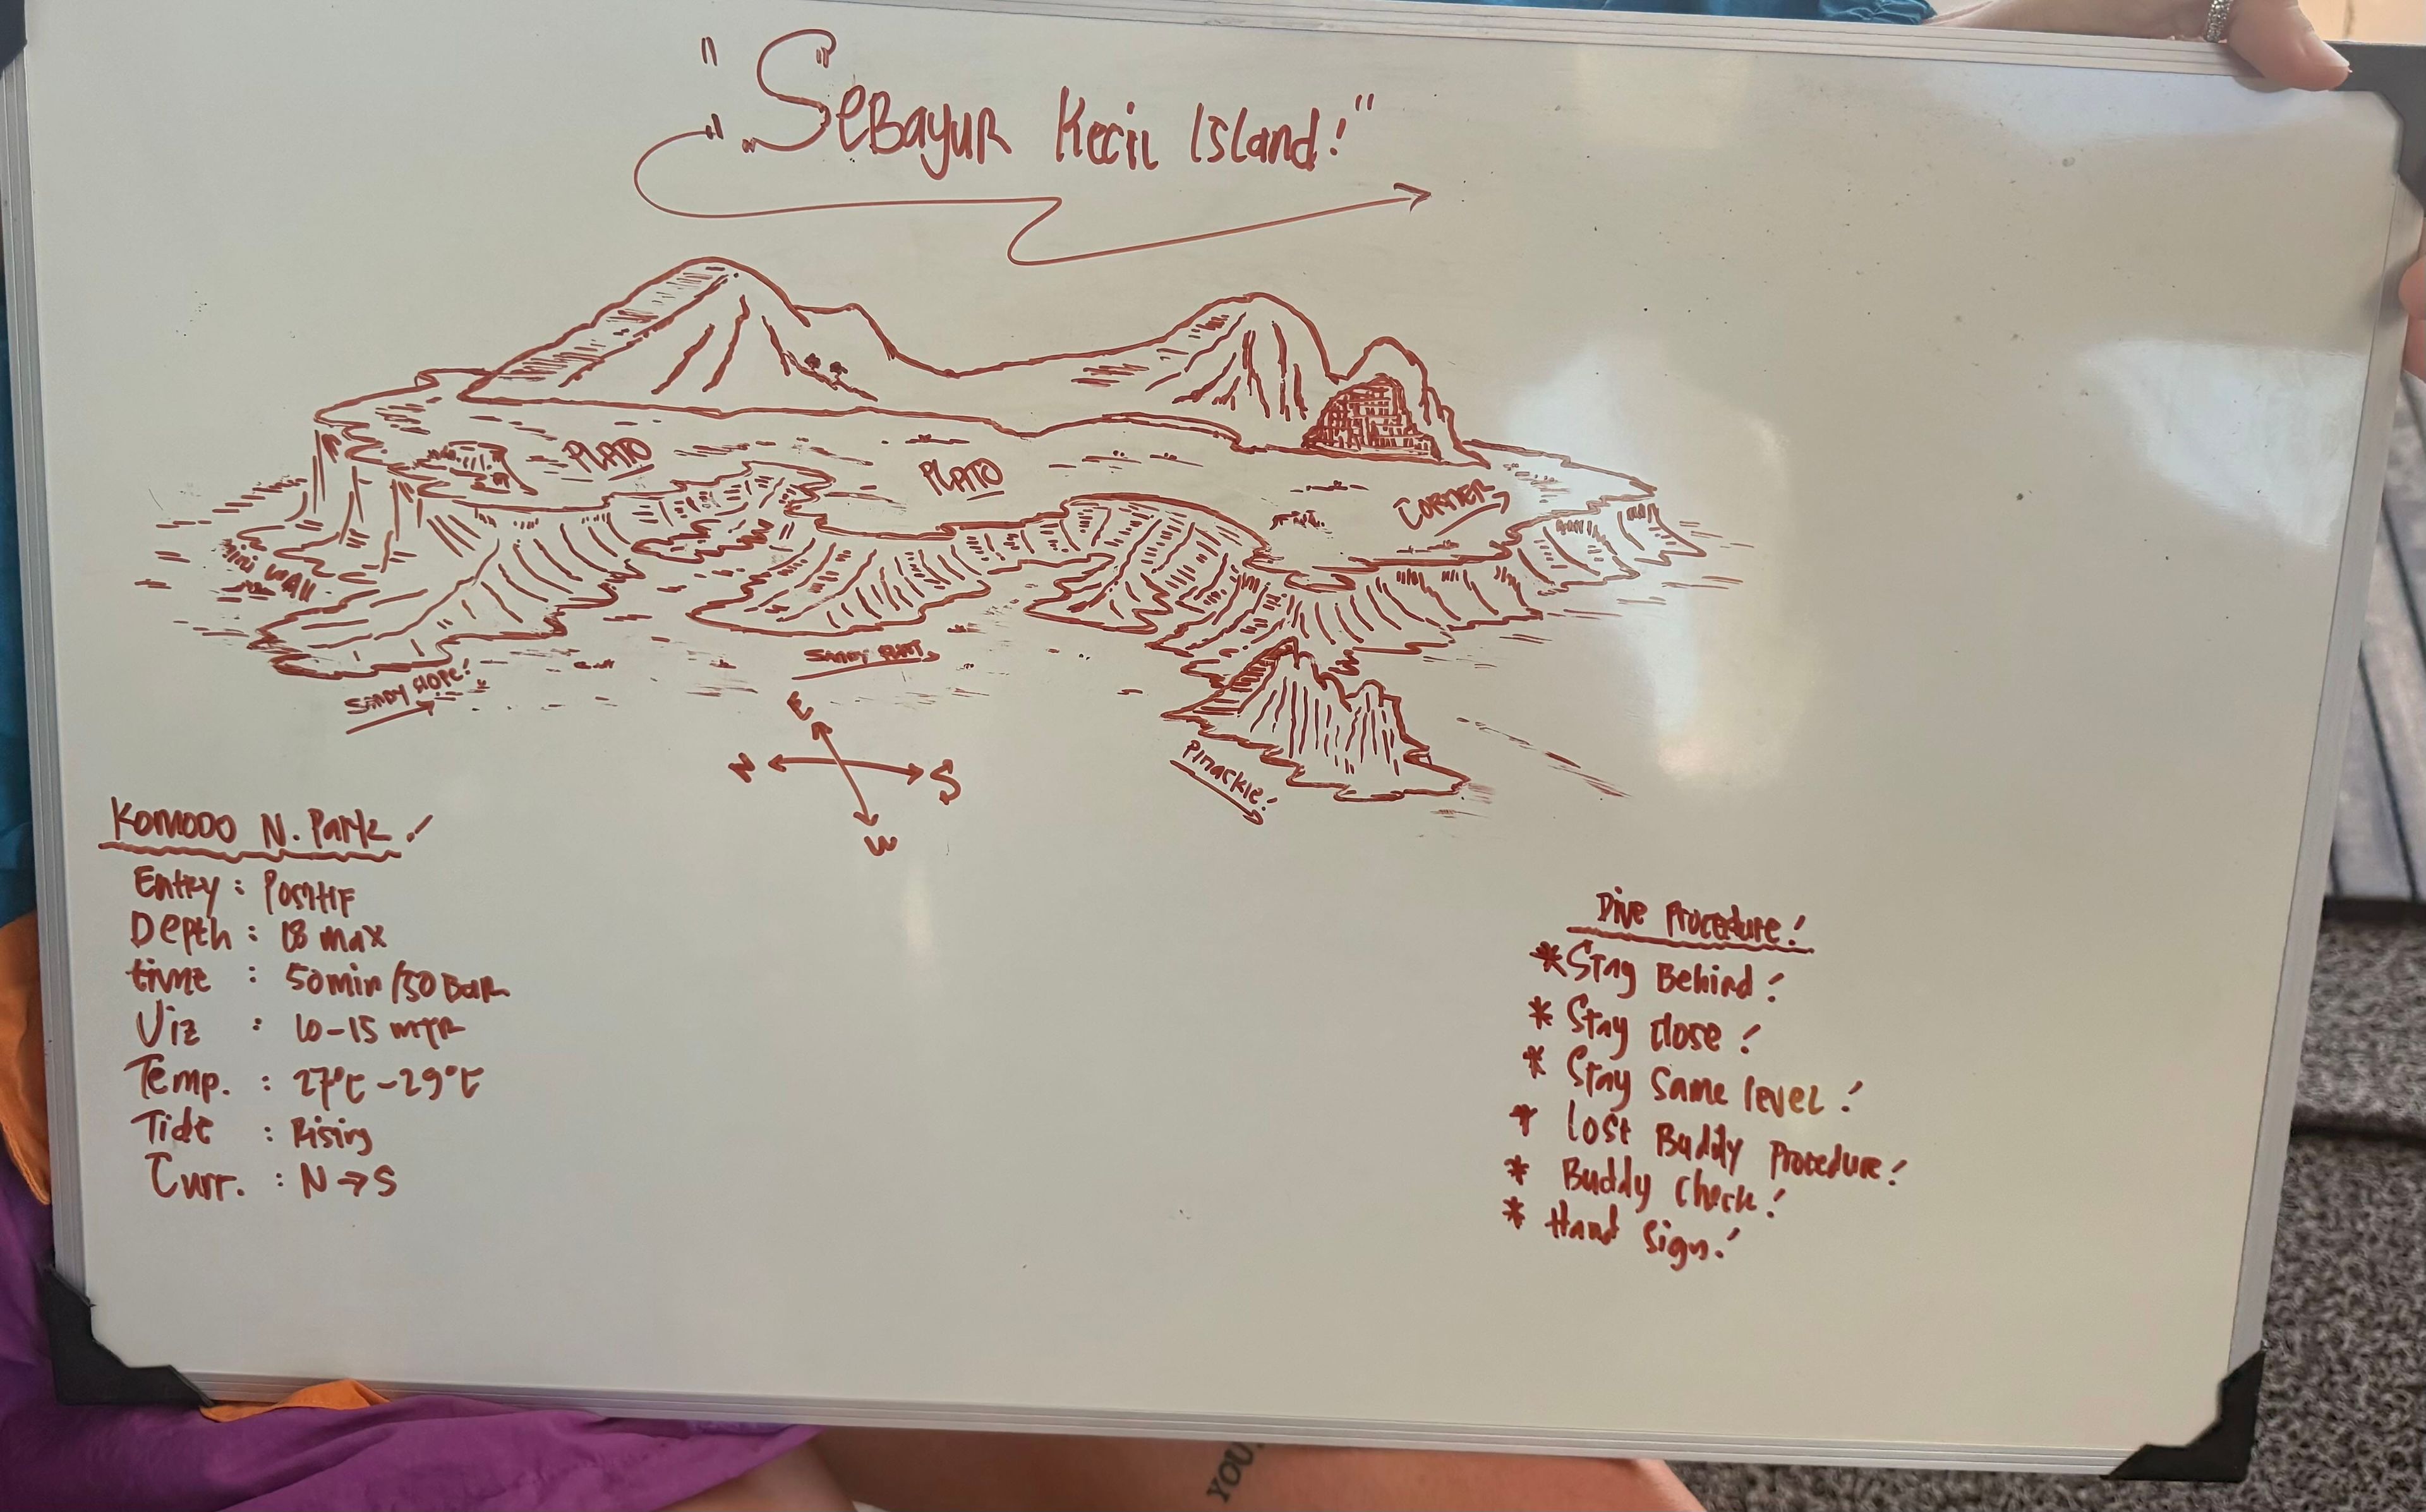 "Sebayur Kecil Island!"
PLATO
PLATO
CORNER
Mini Wall
Sandy Slope!
Sandy Flat
E
N
S
W
Pinackle!
Komodo N. Park!
Entry : Positif
Depth : 18 max
time : 50min/50 Bar
Viz : 10-15 mtr
Temp. : 27°C - 29°C
Tide : Rising
Curr. : N → S
Dive Procedure!
* Stay Behind!
* Stay Close!
* Stay Same level!
* Lost Buddy Procedure!
* Buddy Check!
* Hand Sign!
YOU